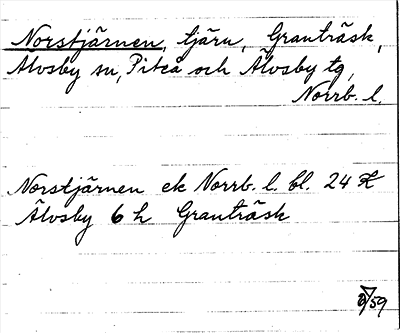 Norstjärnen, tjärn, Granträsk,
Älvsby sn, Piteå och Älvsby tg,
Norrb. l.
Norstjärnen ek Norrb. l. bl. 24 K
Älvsby 6 h Granträsk
/59